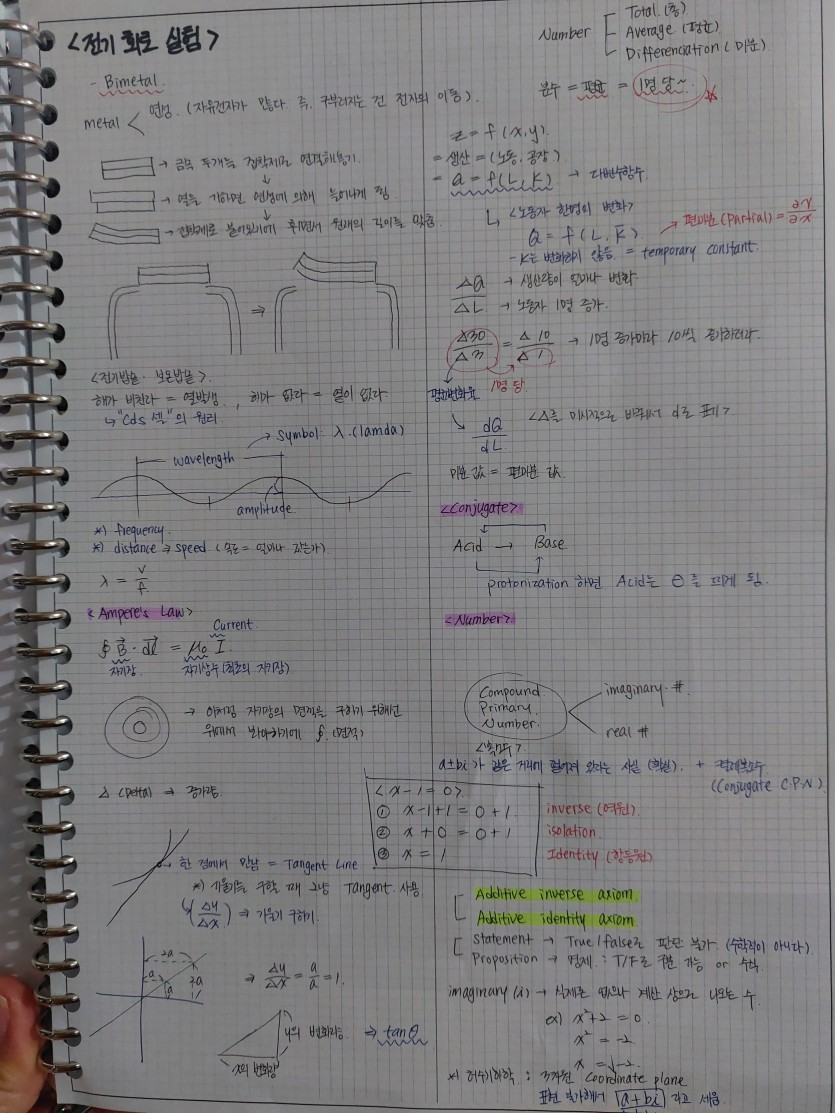 <전기 회로 실험>
- Bimetal
metal < 연성. (자유전자가 많다. 즉, 구부러지는 건 전자의 이동).
→ 금속 두개를 접착제로 연결해놓기
→ 열을 가하면 연성에 의해 늘어나게 됨.
→ 휘면서 원래의 길이를 맞춤
⇒
<전기밥솥·보온밥솥>.
해가 비친다 = 열발생, 해가 없다 = 열이 없다
↳ "Cds 셀"의 원리.
→ symbol: λ.(lamda)
wavelength
amplitude.
*) frequency.
*) distance → speed (속도 = 얼마나 갔는가).
λ = v/f
<Ampere's Law>
Current
∮ B · dl = μ₀ I.
자기장. 자기상수(최초의 자기장)
→ 이처럼 자기장의 면적을 구하기 위해선
위에서 봐야하기에 ∮. (면적)
Δ (Delta) ⇒ 증가량.
한 점에서 만남 = Tangent Line
*) 기울기를 구할 때 그냥 Tangent 사용
(Δy/Δx) ⇒ 기울기 구하기.
2a
a
a
2a
⇒ Δy/Δx = a/a = 1.
y의 변화량 ⇒ tanθ
x의 변화량
Number
Total (총)
Average (평균)
Differenciation (미분)
분수 = 평균 = 1명 당~
z = f(x,y).
= 생산 = (노동, 공장)
= Q = f(L, K) → 다변수함수.
↳ <노동자 한명이 변화>
Q = f(L, K̄) → 편미분(Partial) = ∂Y/∂x
- K는 변화하지 않음 = temporary constant.
ΔQ → 생산량이 얼마나 변화
ΔL → 노동자 1명 증가.
Δ30/Δ3 = Δ10/Δ1 → 1명 증가마다 10씩 증가하더라.
평균변화율 1명 당
dQ/dL <Δ를 미시적으로 바꿔서 d로 표기>
미분 값 = 편미분 값.
<Conjugate>
Acid → Base
protonization 하면 Acid는 ⊖를 띄게 됨.
<Number>
Compound
Primary
Number.
imaginary #
real #
<복소수>
a±bi가 같은 거리에 떨어져 있다는 사실 (확실). + 켤레복소수
(Conjugate C.P.N)
<x-1=0>
① x-1+1 = 0+1 inverse (역원)
② x+0 = 0+1 isolation
③ x = 1 Identity (항등원)
Additive inverse axiom
Additive identity axiom
Statement → True/false로 판단 불가 (수학적이 아니다)
Proposition → 명제 : T/F로 구분 가능 or 수학
imaginary (i) → 실제로 없으나 계산 상으로 나오는 수.
ex) x²+2 = 0.
x² = -2
x = √-2.
*) 허수기하학 : 3차원 coordinate plane
표현 불가해서 a+bi 라고 세움